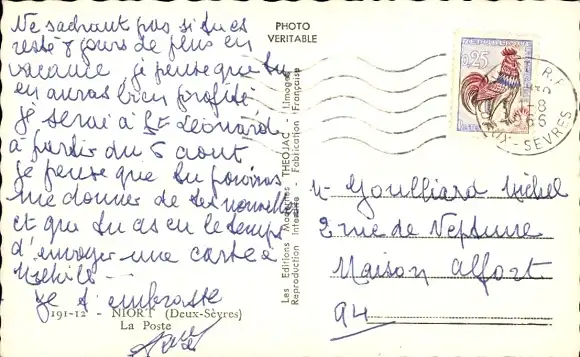 Ne sachant pas si tu es
resté 8 jours de plus en
vacance je pense que tu
en auras bien profité
je serai à St Léonard
à partir du 5 aout
je pense que tu pourras
me donner de tes nouvelles
et que tu as eu le temps
d'envoyer une carte à
je t'embrasse
191-12 - NIORT (Deux-Sèvres)
La Poste
PHOTO
VERITABLE
Les Editions Modernes THEOJAC - Limoges
Reproduction Interdite - Fabrication Française
0,25
R.F.
-8
66
DEUX-SEVRES
Mr Goulliard Michel
2 rue de Neptune
Maison Alfort
94